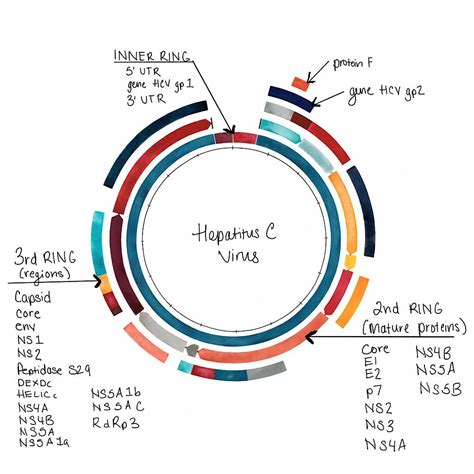 INNER RING
5' UTR
gene HCV gp1
3' UTR
protein F
gene HCV gp2
Hepatitus C
Virus
3rd RING
(regions)
Capsid
core
env
NS1
NS2
Peptidase S29
DEXDc
HELICc
NS4A
NS4B
NS5A
NS5A1a
NS5A1b
NS5AC
RdRp3
2nd RING
(Mature proteins)
Core
E1
E2
p7
NS2
NS3
NS4A
NS4B
NS5A
NS5B